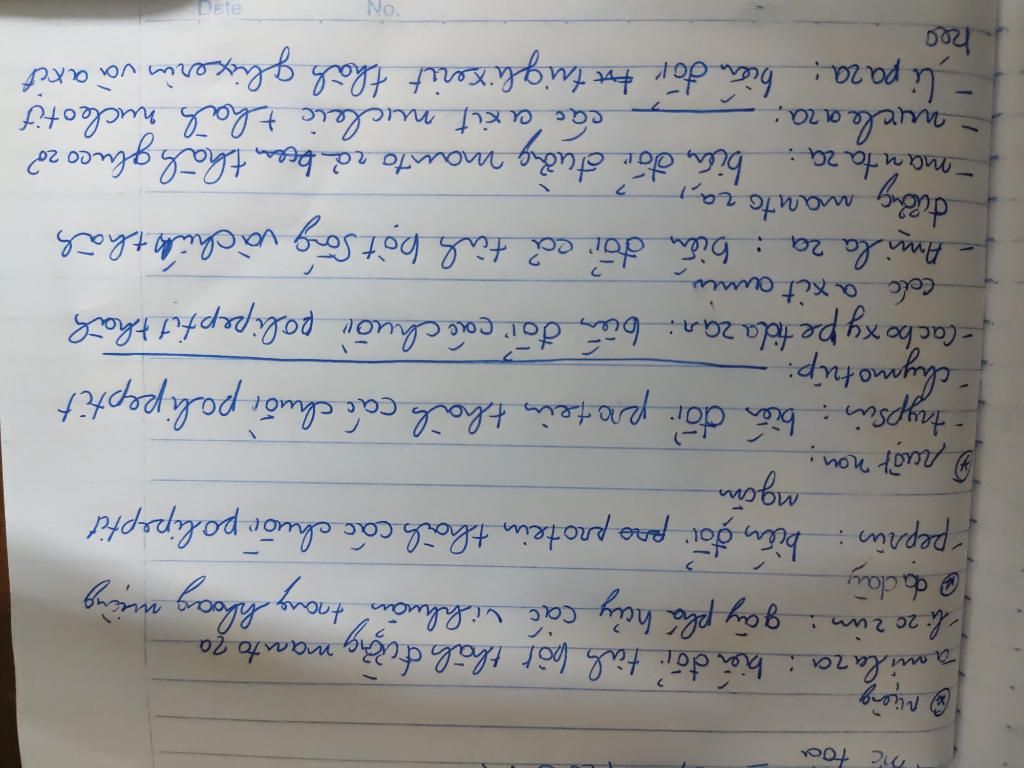 ⊛ miệng
- amilaza : biến đổi tinh bột thành đường mantoza
- lizozim : gây phá hủy các vi khuẩn trong khoang miệng
⊛ dạ dày
- pepsin : biến đổi protein thành các chuỗi polipeptit
ngắn
⊛ ruột non :
- trypsin : biến đổi protein thành các chuỗi polipeptit
- chymotrip :
- cacboxypetidazan : biến đổi các chuỗi polipeptit thành
các axit amin
- Amilaza : biến đổi cả tinh bột sống và chín thành
đường mantoza,
- mantaza : biến đổi đường mantoza thành glucozơ
- nucleaza : các axit nucleic thành nucleotit
- Lipaza : biến đổi triglixerit thành glixerin và axit
béo
Date No.